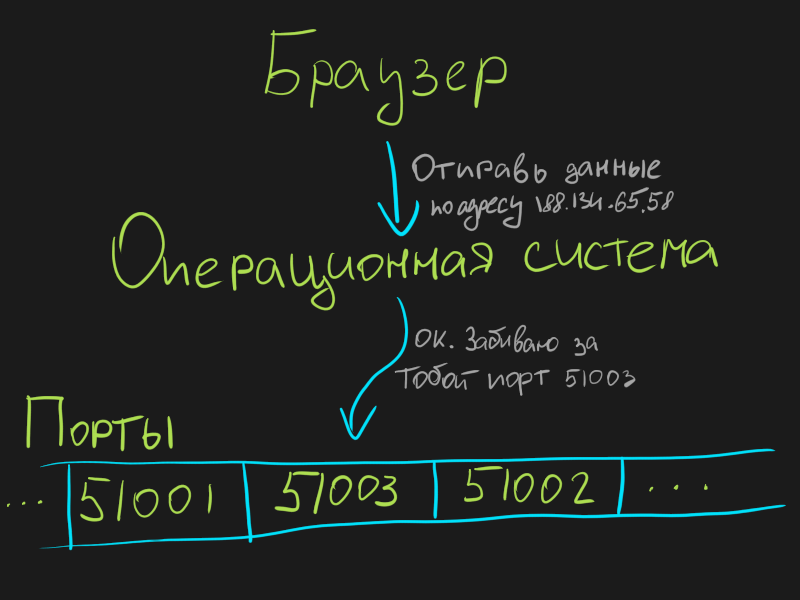 Браузер
Отправь данные
по адресу 188.134.65.58
Операционная система
ОК. Забиваю за
Тобой порт 51003
Порты
... 51001 51003 51002 ...